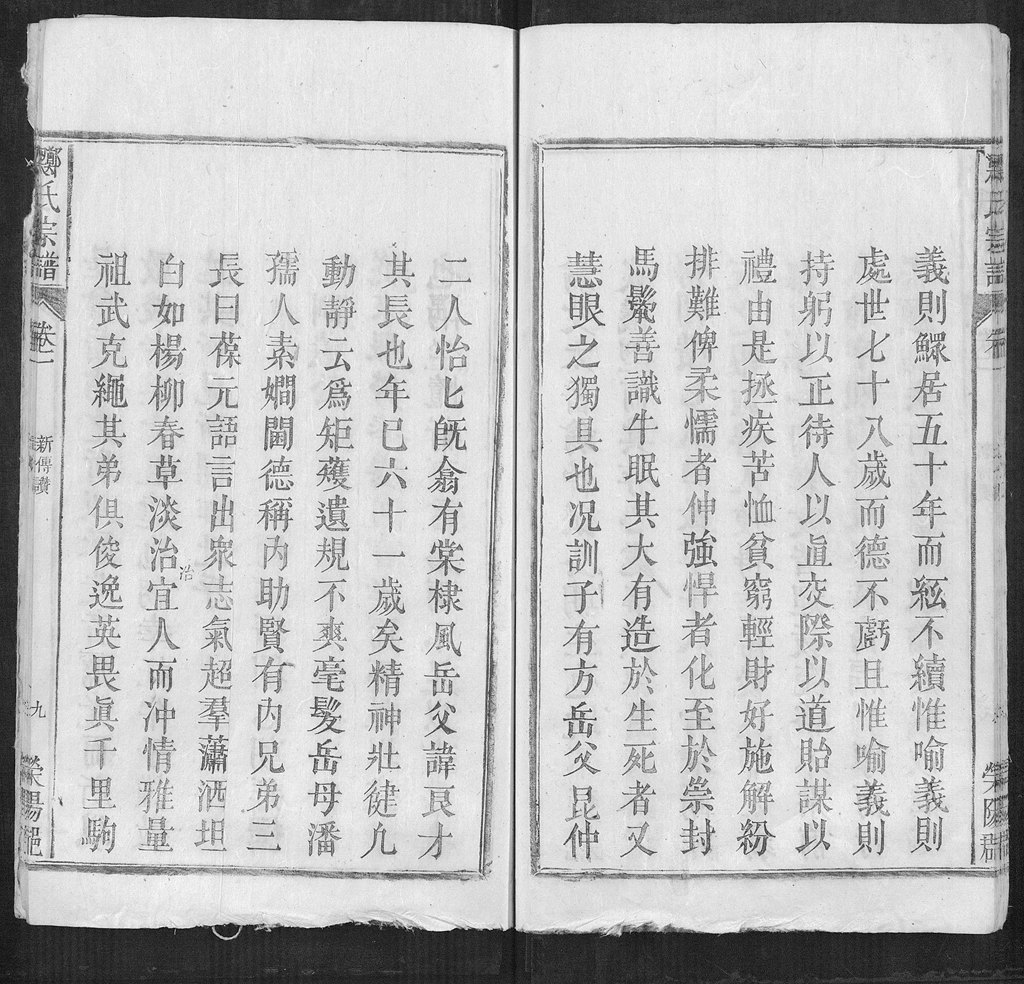 義則鰥居五十年而絃不續惟喻義則
處世七十八歲而德不虧且惟喻義則
持躬以正待人以眞交際以道貽謀以
禮由是拯疾苦恤貧窮輕財好施解紛
排難俾柔懦者伸強悍者化至於崇封
馬鬣善識牛眠其大有造於生死者又
慧眼之獨具也况訓子有方岳父昆仲
二人怡匕旣翕有棠棣風岳父諱良才
其長也年已六十一歲矣精神壯健凢
動靜云爲矩蒦遺規不爽毫髮岳母潘
孺人素嫺閫德稱内助賢有内兄弟三
長曰葆元語言出衆志氣超羣瀟洒坦
白如楊柳春草淡治宜人而冲情雅量
冶
祖武克繩其弟俱俊逸英畏眞千里駒
鄭氏宗譜
卷一
新傳讃
九
滎陽